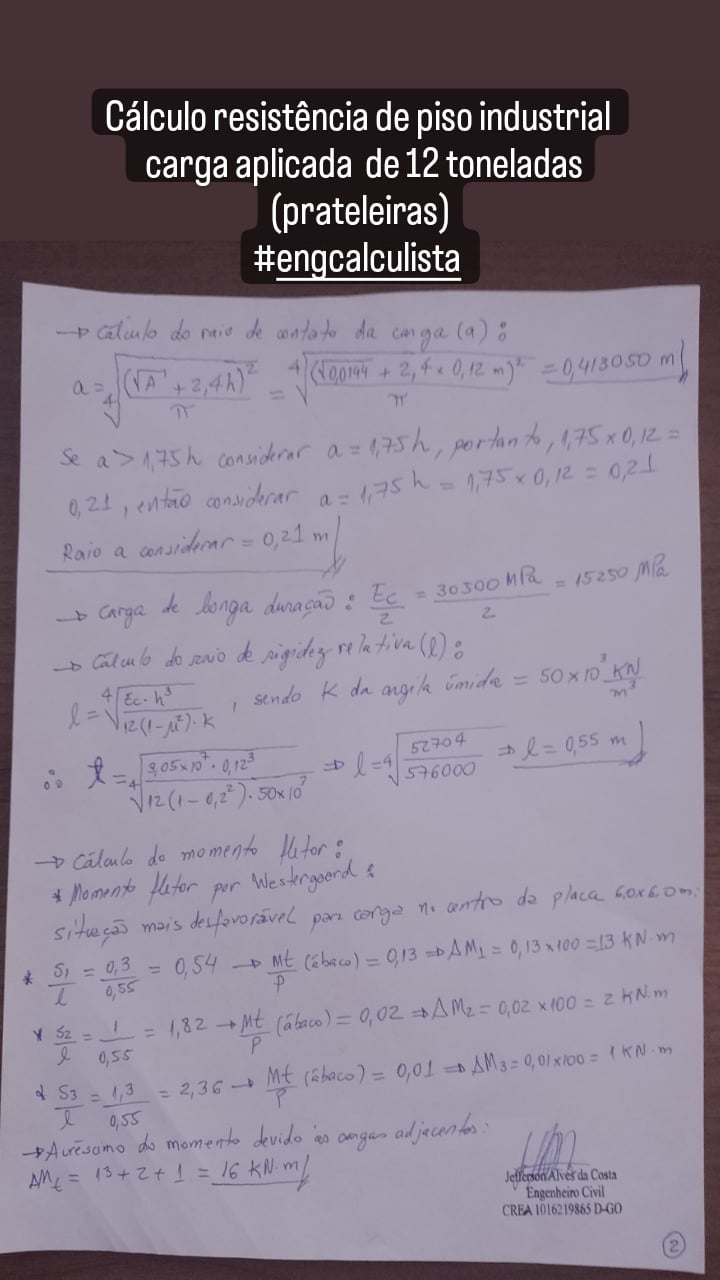 Cálculo resistência de piso industrial
carga aplicada de 12 toneladas
(prateleiras)
#engcalculista
→ Cálculo do raio de contato da carga (a):
a = ∜((√A + 2,4h)²/π) = ∜((√0,0144 + 2,4 x 0,12 m)²/π) = 0,413050 m
Se a > 1,75h considerar a = 1,75h, portanto, 1,75 x 0,12 =
0,21, então considerar a = 1,75h = 1,75 x 0,12 = 0,21
Raio a considerar = 0,21 m
→ Carga de longa duração: Ec/2 = 30500 MPa/2 = 15250 MPa
→ Cálculo do raio de rigidez relativa (l):
l = ∜(Ec·h³/12(1-μ²)·k), sendo K da argila úmida = 50x10³ KN/m³
∴ l = ∜(3,05x10⁷·0,12³/12(1-0,2²)·50x10³) ⇒ l = ∜(52704/576000) ⇒ l = 0,55 m
→ Cálculo do momento fletor:
* Momento fletor por Westergaard:
situação mais desfavorável para carga no centro da placa 6,0x6,0m:
* S1/l = 0,3/0,55 = 0,54 → Mt/P (ábaco) = 0,13 ⇒ ΔM1 = 0,13x100 = 13 KN.m
* S2/l = 1/0,55 = 1,82 → Mt/P (ábaco) = 0,02 ⇒ ΔM2 = 0,02x100 = 2 KN.m
* S3/l = 1,3/0,55 = 2,36 → Mt/P (ábaco) = 0,01 ⇒ ΔM3 = 0,01x100 = 1 KN.m
→ Acréscimo do momento devido às cargas adjacentes:
ΔMt = 13 + 2 + 1 = 16 KN.m
Jefferson Alves da Costa
Engenheiro Civil
CREA 1016219865 D-GO
2